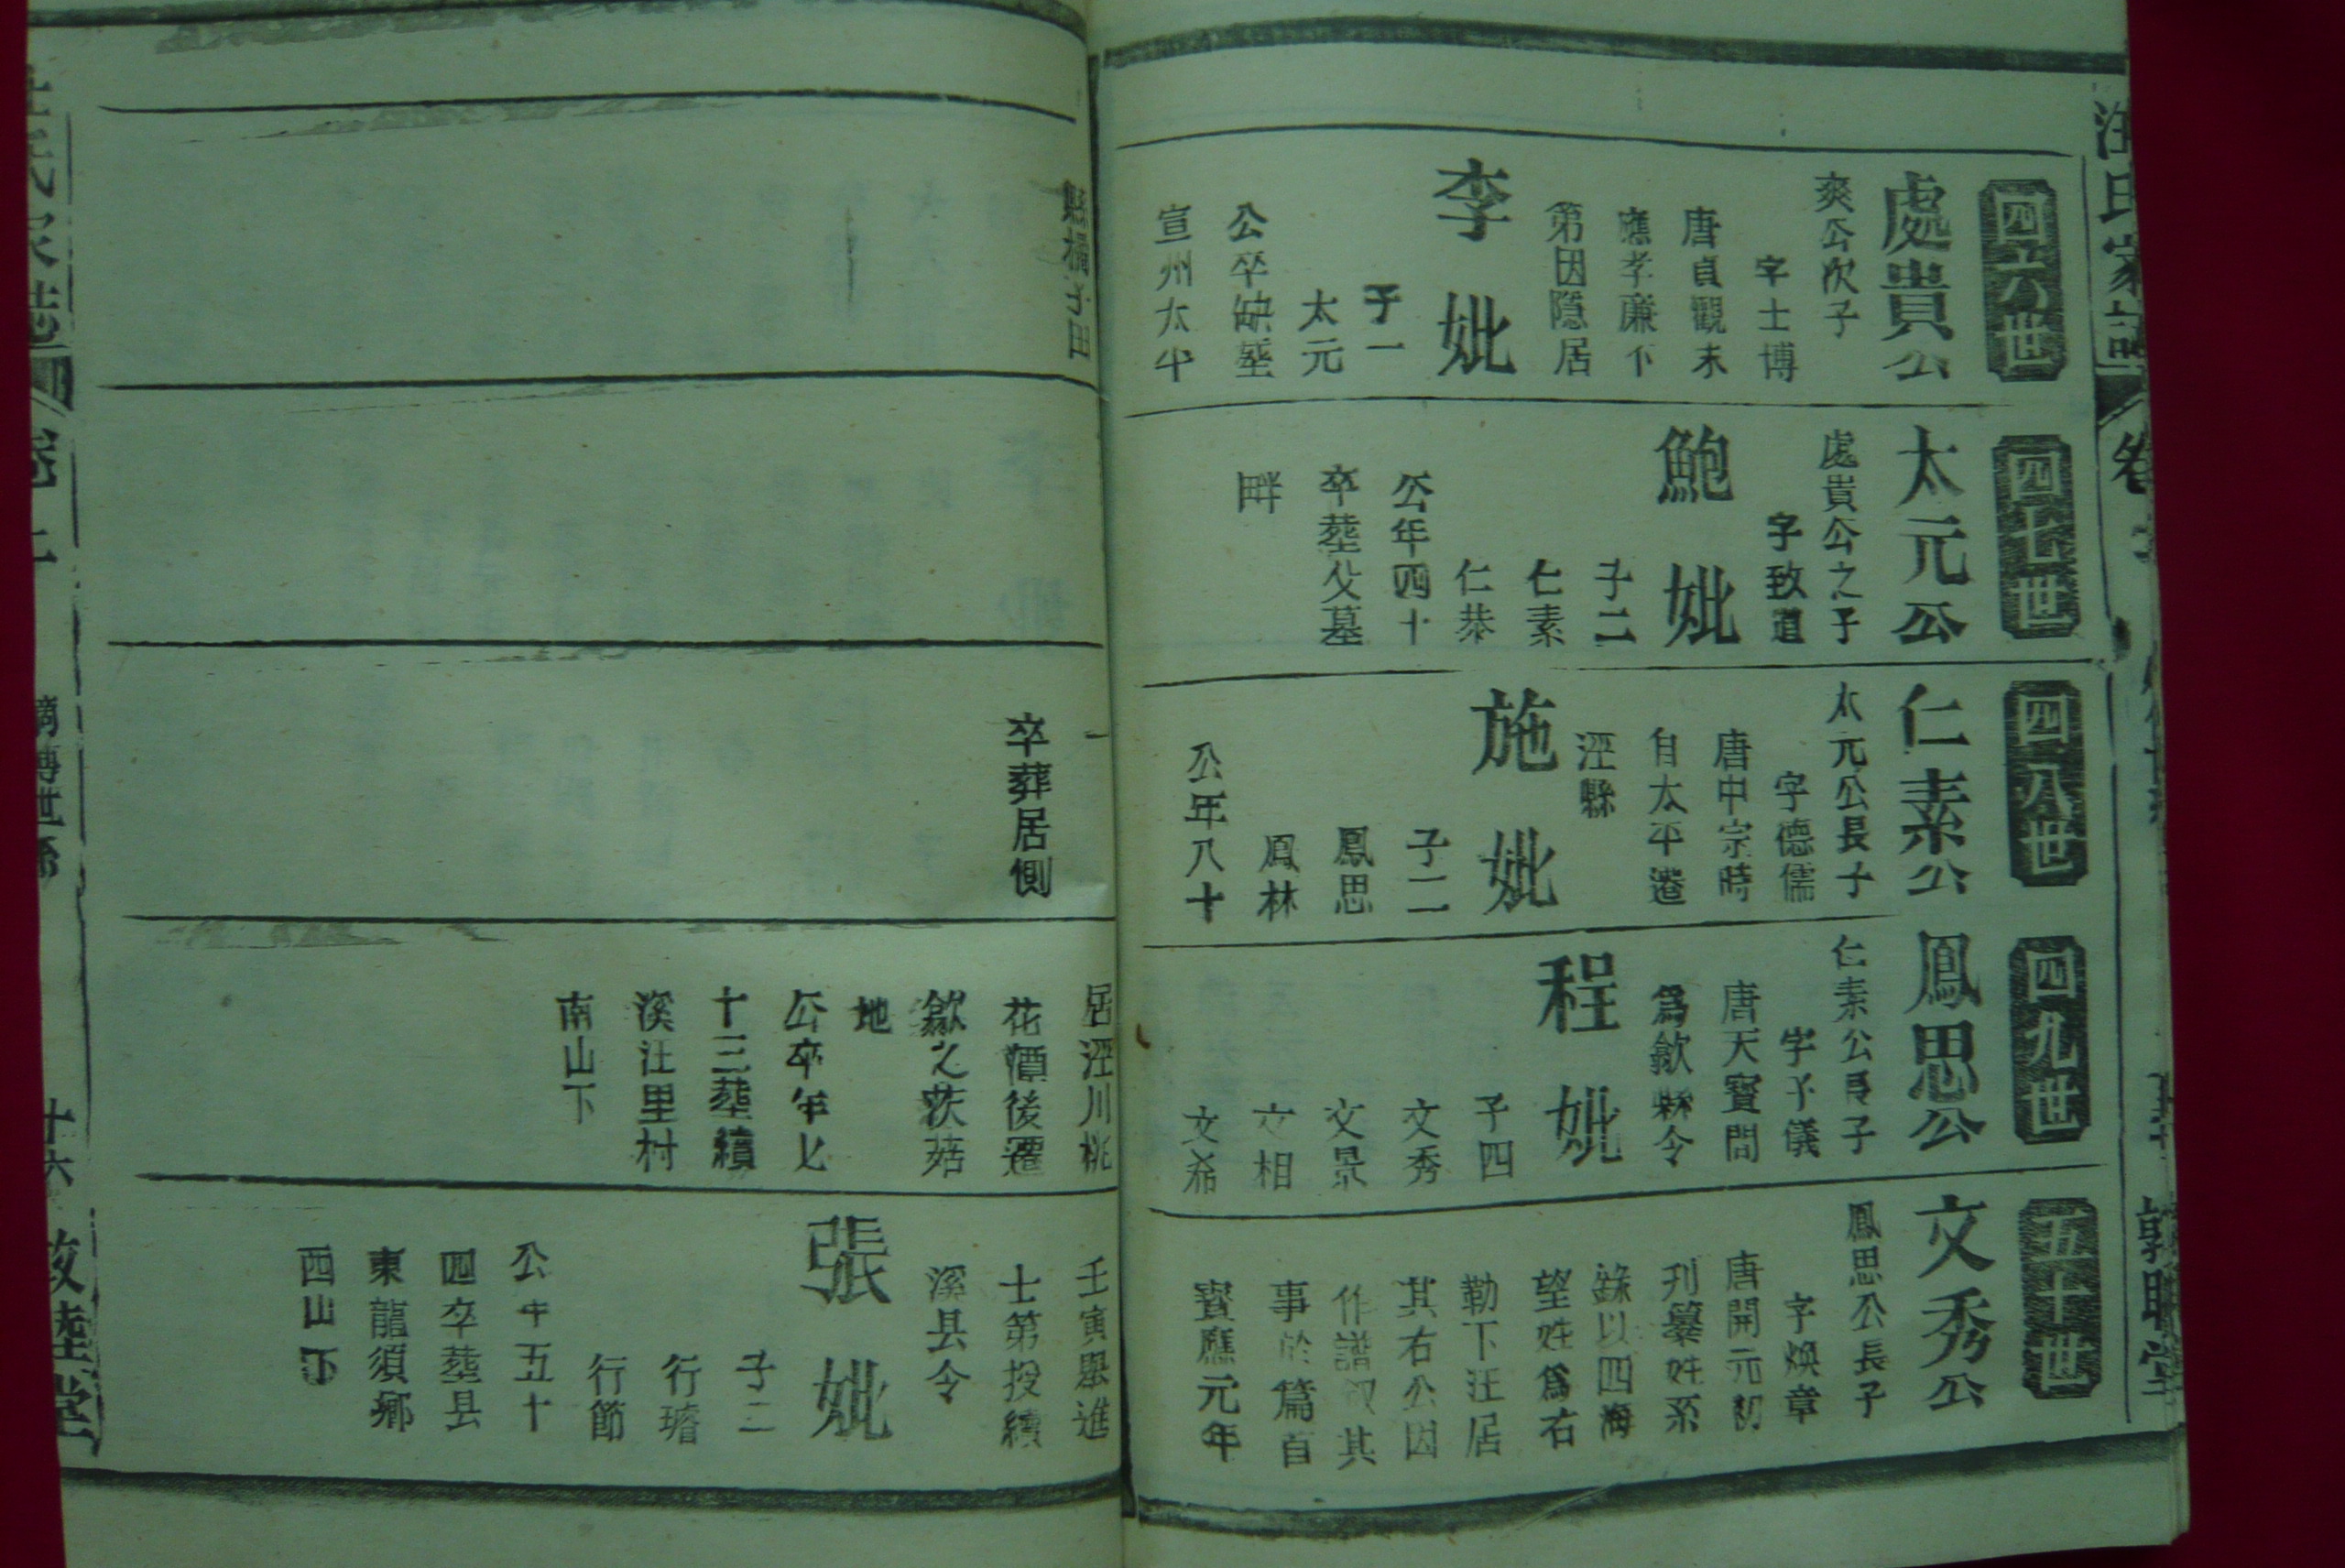 四六世
處貴公
爽公次子
字士博
唐貞觀末
應孝廉不
第因隱居
李妣
子一
太元
公卒缺塟
宣州太平
縣橘子田
四七世
太元公
處貴公之子
字致道
鮑妣
子二
仁素
仁恭
公年四十
卒塟父墓
畔
四八世
仁素公
太元公長子
字德儒
唐中宗時
自太平遷
涇縣
施妣
子二
鳳思
鳳林
公年八十
一
卒葬居側
四九世
鳳思公
仁素公長子
字予儀
唐天寶間
爲歙縣令
程妣
子四
文秀
文景
文相
文希
居涇川桃
花潭後遷
歙之茨菇
地
公卒年七
十三塟績
溪汪里村
南山下
五十世
文秀公
鳳思公長子
字煥章
唐開元初
刋纂姓系
錄以四海
望姓爲右
勒下汪居
其右公因
作譜叙其
事於篇首
寳應元年
壬寅舉進
士第授績
溪县令
張妣
子二
行瑃
行節
公年五十
四卒塟县
東龍須鄉
西山下
嫡傳世系
十六
敦睦堂